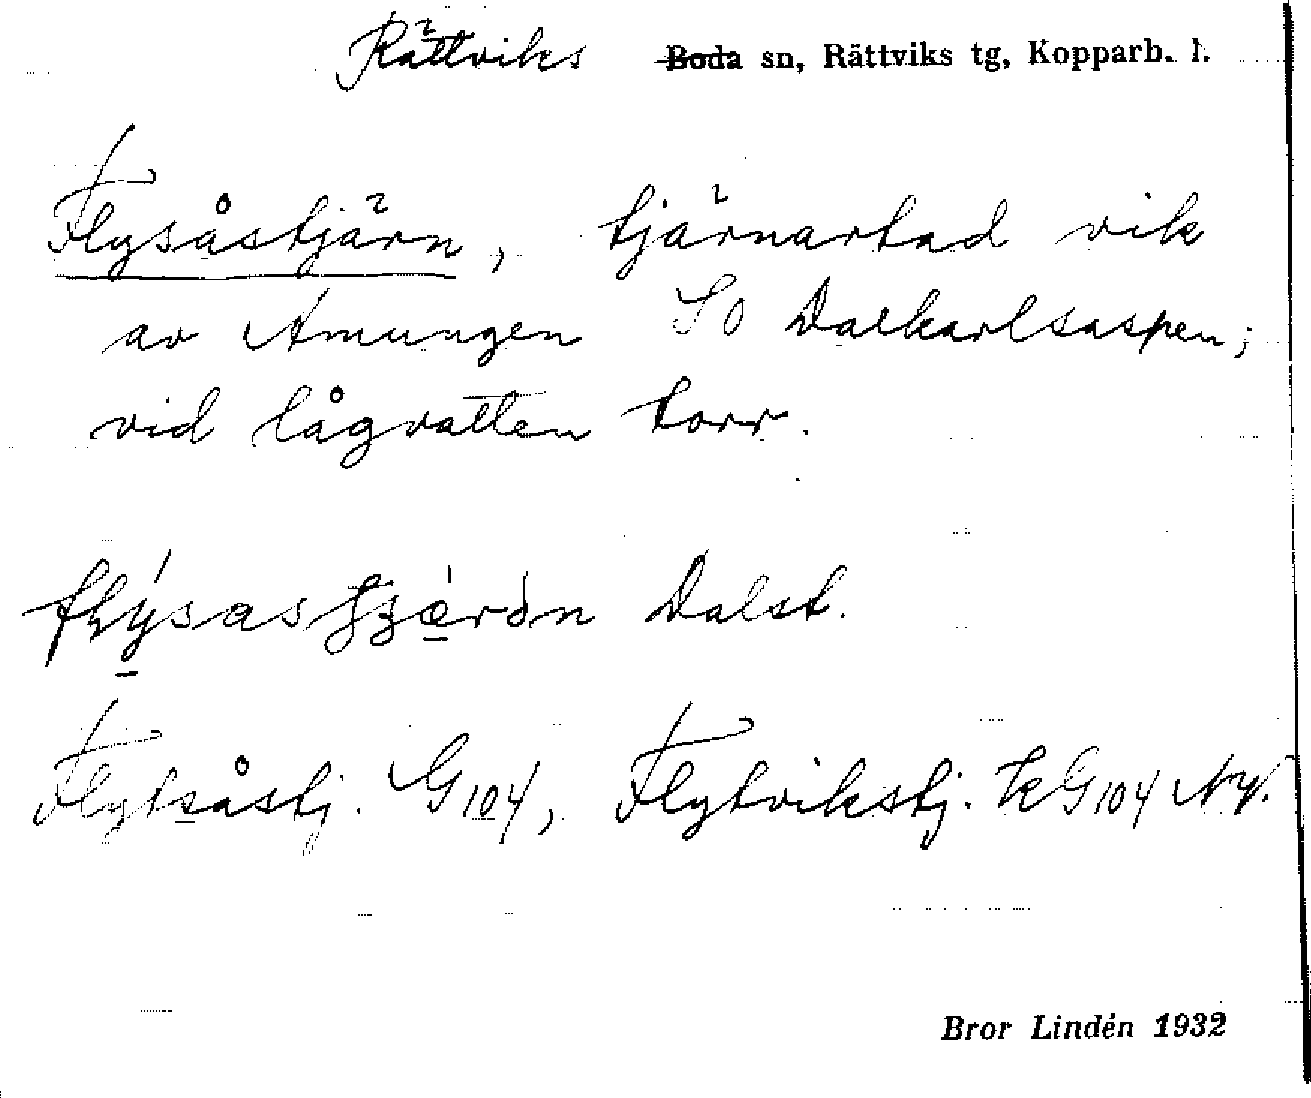 Rättviks Boda sn, Rättviks tg, Kopparb. l.
Flysåstjärn, tjärnartad vik
av Amungen SO Dalkarlsaspen;
vid lågvatten torr.
Dalst.
Flytsåstj. G104, Flytvikstj. kG104 NV.
Bror Lindén 1932